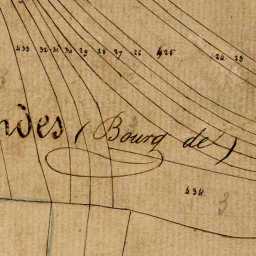 433 32 31 30 29 28 27 26 425 24 23
ndes (Bourg de)
434
3